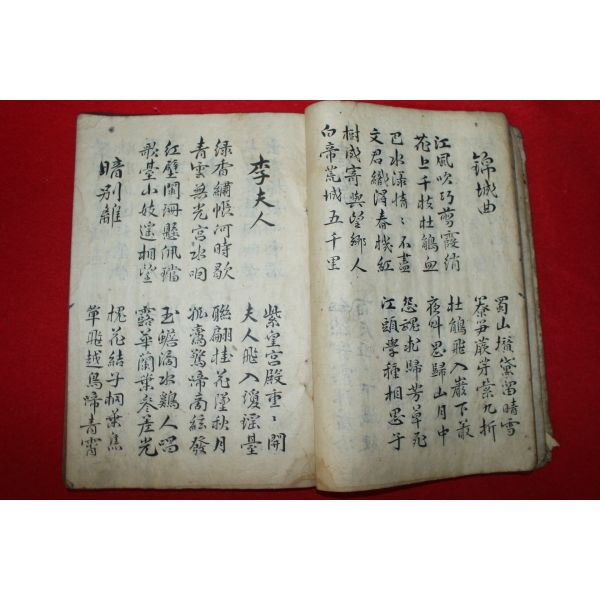 錦城曲
蜀山攢黛留晴雪
簝笋蕨芽縈九折
江風吹巧剪霞綃
花上千枝杜鵑血
杜鵑飛入巖下叢
夜叫思歸山月中
巴水漾情〻不盡
文君織得春機紅
怨魂未歸芳草死
江頭學種相思子
樹成寄與望鄉人
白帝荒城五千里
李夫人
紫皇宮殿重〻開
夫人飛入瓊瑤臺
綠香繡帳何時歇
青雲無光宮水咽
聯翩桂花墜秋月
孤鸞驚啼商絲發
紅壁闌珊懸佩璫
歌臺小妓遙相望
玉蟾滴水鷄人唱
露華蘭葉參差光
暗別離
槐花結子桐葉焦
單飛越鳥啼青霄